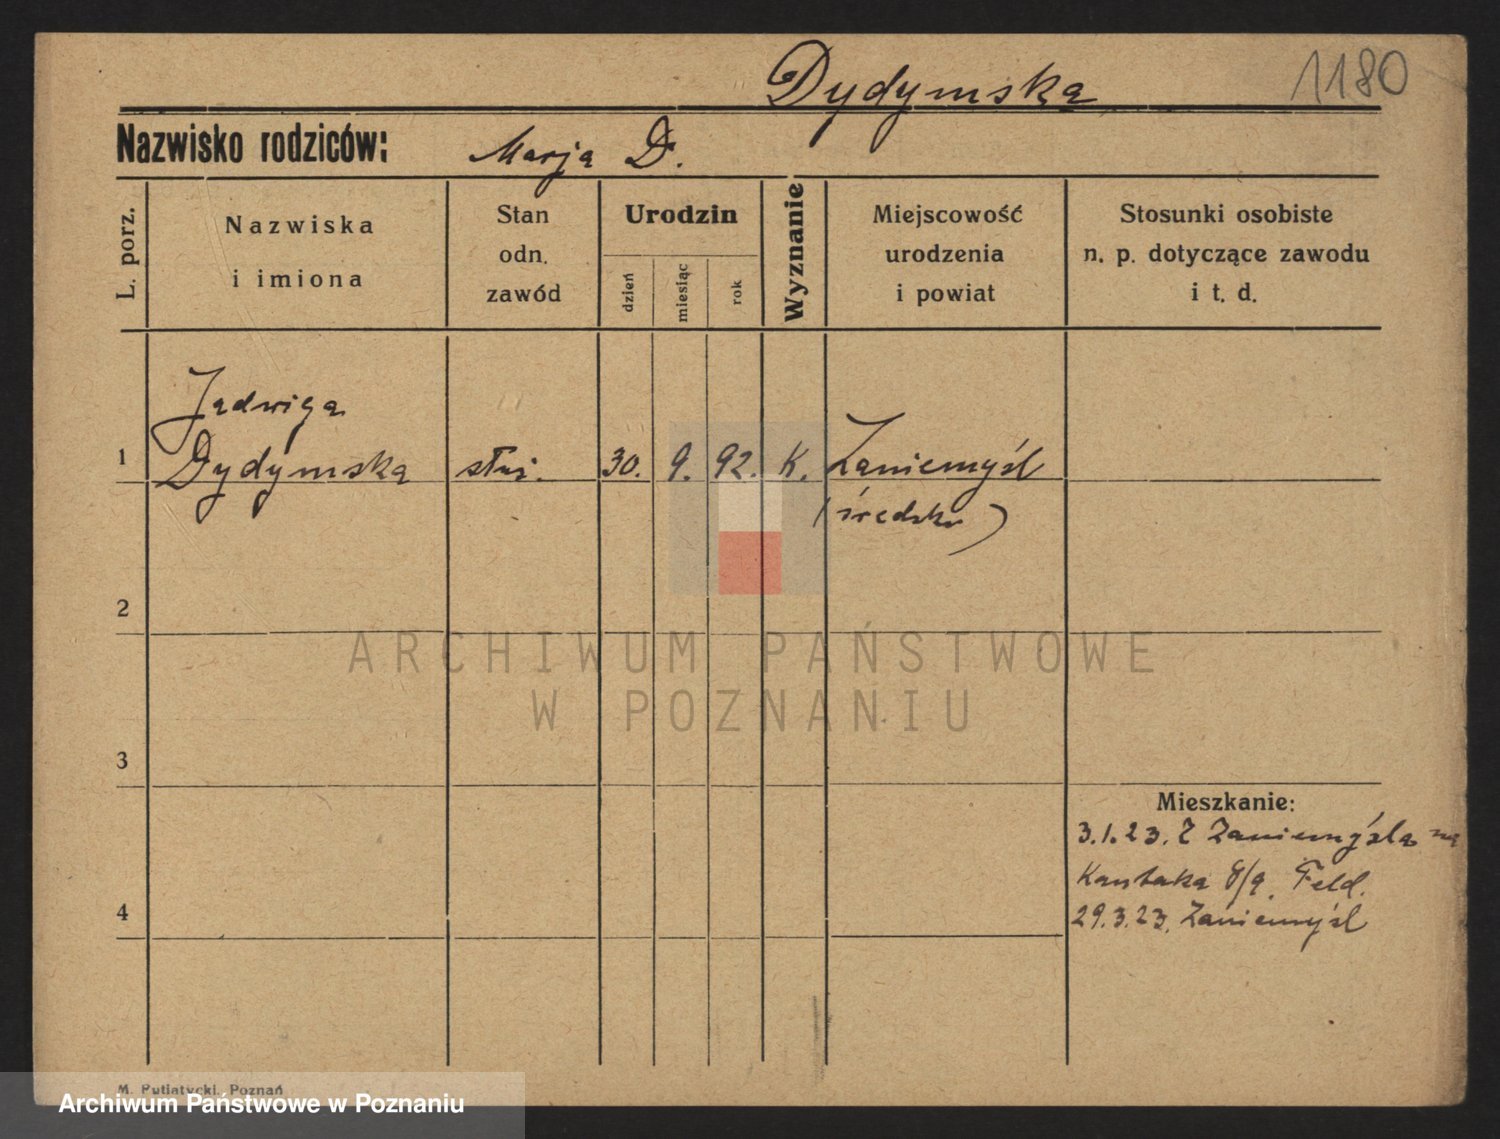 Dydymska
1180
Nazwisko rodziców: Marja D.
L. porz.
Nazwiska
i imiona
Stan
odn.
zawód
Urodzin
dzień
miesiąc
rok
Wyznanie
Miejscowość
urodzenia
i powiat
Stosunki osobiste
n. p. dotyczące zawodu
i t. d.
Jadwiga
1 Dydymska służ. 30. 9. 92. K. Zaniemyśl
(średzki)
2
ARCHIWUM PAŃSTWOWE
W POZNANIU
3
Mieszkanie:
3.1.23. Z Zaniemyśla na
Kantaka 8/9. Feld.
4
29.3.23. Zaniemyśl
M. Putiatycki, Poznań
Archiwum Państwowe w Poznaniu